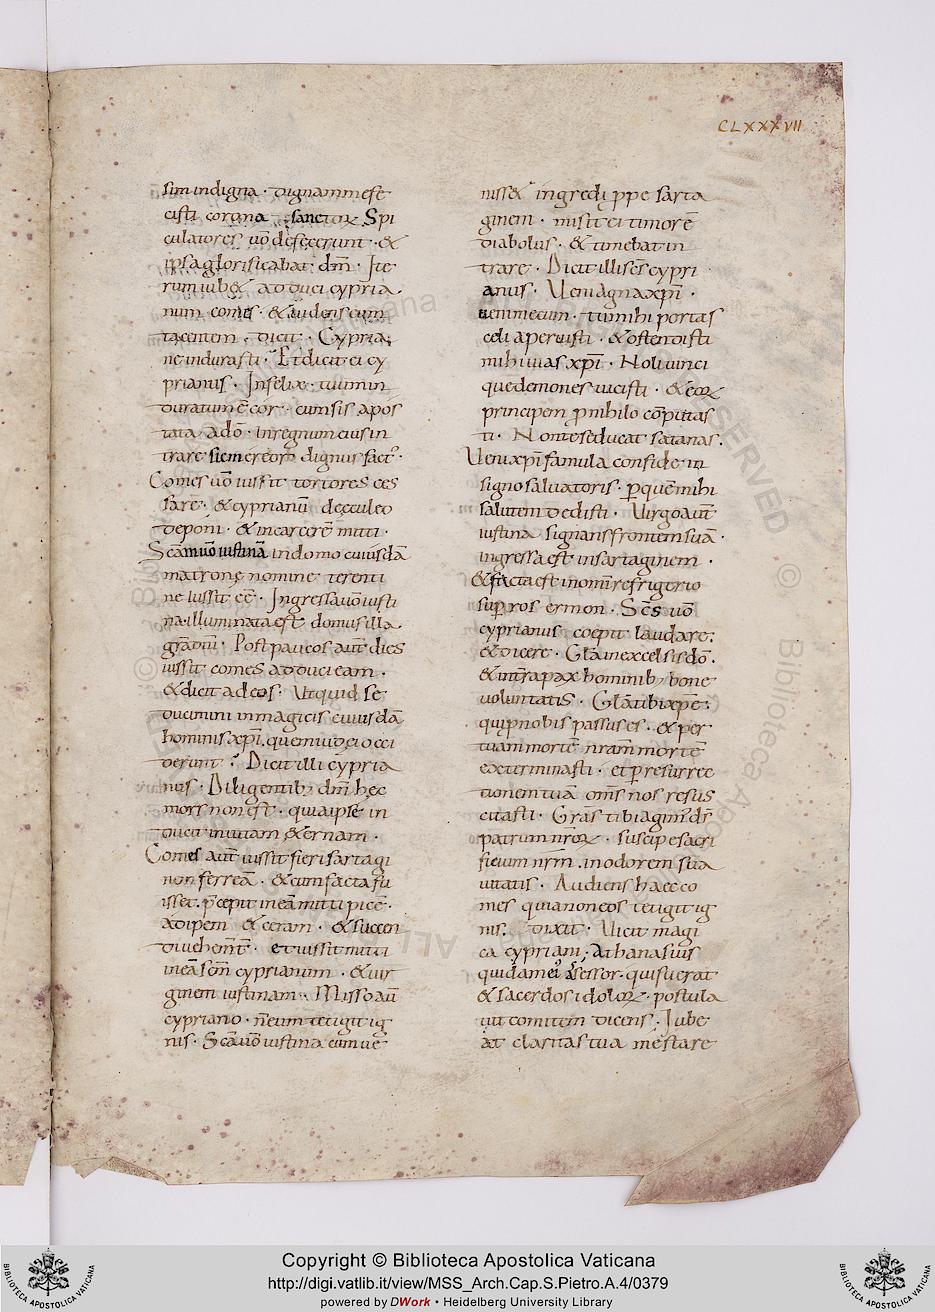 CLXXXVII
sim indigna · dignam me fe
cisti corona · sanctoꝝ Spi
culatores uō defecerunt · &
ipsa glorificabat dm̄ · Ite
rum iub& adduci cypria
num comes · & uidens eum
tacentem · dicit · Cypria
ne indurasti · Et dicit ei cy
prianus · Infelix tuum in
duratum ē cor · cum sis apos
tata a dō · in regnum eius in
trare si em creōr̄ dignus fact᷒ ·
Comes uō iussit tortores ces
sare · & cyprianū de eculeo
deponi · & in carcerē mitti ·
Scām uō iustinā in domo cuiusdā
matronę nomine terenti
ne iussit eē · Ingressa uō iusti
na · illuminata est domus illa
gr̄a dn̄i · Post paucos aut̄ dies
iussit comes adduci eam ·
& dicit ad eos · Ut quid se
ducimini in magicis cuiusdā
hominis xp̄i · quem iudei occi
derunt ? Dicit illi cypria
nus · Diligentib; dm̄ hec
mors non est · quia ipse in
ducit in uitam ęternam ·
Comes aut̄ iussit fieri sartagi
nem ferreā · & cum facta fu
isset · p̄cepit in eā mitti picē ·
adipem & ceram · & succen
di uehem̄t̄ · et iussit mitti
in eā scm̄ cyprianum · & uir
ginem iustinam · Misso aū
cypriano · n̄ eum tetigit ig
nis · Scā uō iustina cum ue
niss& ingredi ꝓpe sarta
ginem · misit ei timorē
diabolus · & timebat in
trare · Dicit illi scs̄ cypri
anus · Ueni agna xp̄i ·
ueni mecum · tu mihi portas
celi aperuisti · & ostendisti
mihi uias xp̄i · Noli uinci
que demones uicisti · & eoꝝ
principem ꝓ nihilo cōputas
ti · Non te seducat satanas .
Ueni xp̄i famula confide in
signo saluatoris · ꝑ quē mihi
salutem dedisti · Uirgo aut̄
iustina signans frontem suā ·
ingressa est in sartaginem ·
& facta est in om̄i refrigerio
sup̄ ros sermon · Scs̄ uō
cyprianus coepit laudare ·
& dicere · Glā in excelsis dō ·
& in trā pax hominib; bone
uoluntatis · Glā tibi xp̄e ·
qui ꝓ nobis passus es · & per
tuam mortē nr̄am mortē
exterminasti · et ꝑ resurrec
tionem tuā omīs nos resus
citasti · Gr̄as tibi agim᷒ ds̄
patrum nr̄oꝝ · suscipe sacri
ficium nrm̄ · in odorem sua
uitatis · Audiens haec co
mes quia non eos tetigit ig
nis · dixit · Uicit magi
ca cypriani · Athanasius
quidam ei᷒ adsessor · qui fuerat
& sacerdos idoloꝝ · postula
uit comitem dicens · Iube
at claritas tua me stare
Copyright © Biblioteca Apostolica Vaticana
http://digi.vatlib.it/view/MSS_Arch.Cap.S.Pietro.A.4/0379
powered by DWork • Heidelberg University Library